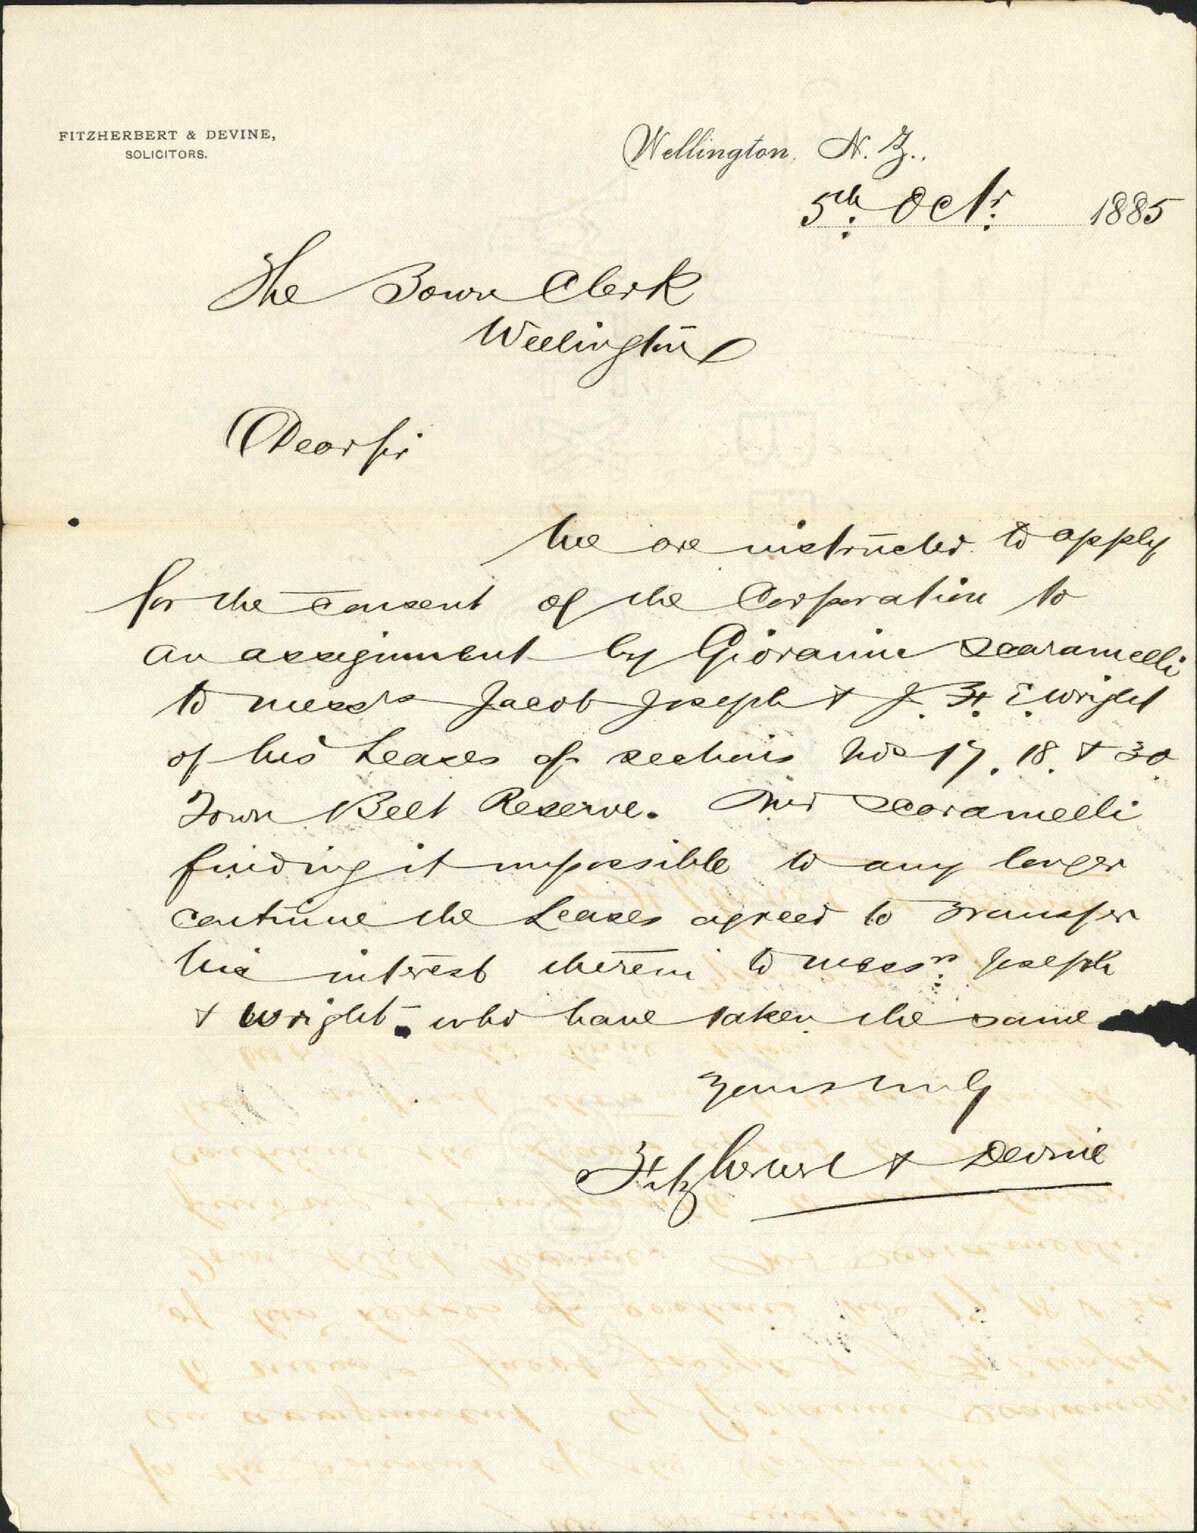 FITZHERBERT & DEVINE,
SOLICITORS.
Wellington, N. Z.,
5th Octr 1885
The Town Clerk
Wellington
Dear Sir
We are instructed to apply
for the consent of the Corporation to
an assignment by Giovanni Scaramelli
to Messrs Jacob Joseph & J. H. E. Wright
of his Leases of sections Nos 17, 18 & 30
Town Belt Reserve. Mr Scaramelli
finding it impossible to any longer
continue the Leases agreed to transfer
his interest therein to Messrs Joseph
& Wright who have taken the same
Yours truly
Fitzherbert & Devine